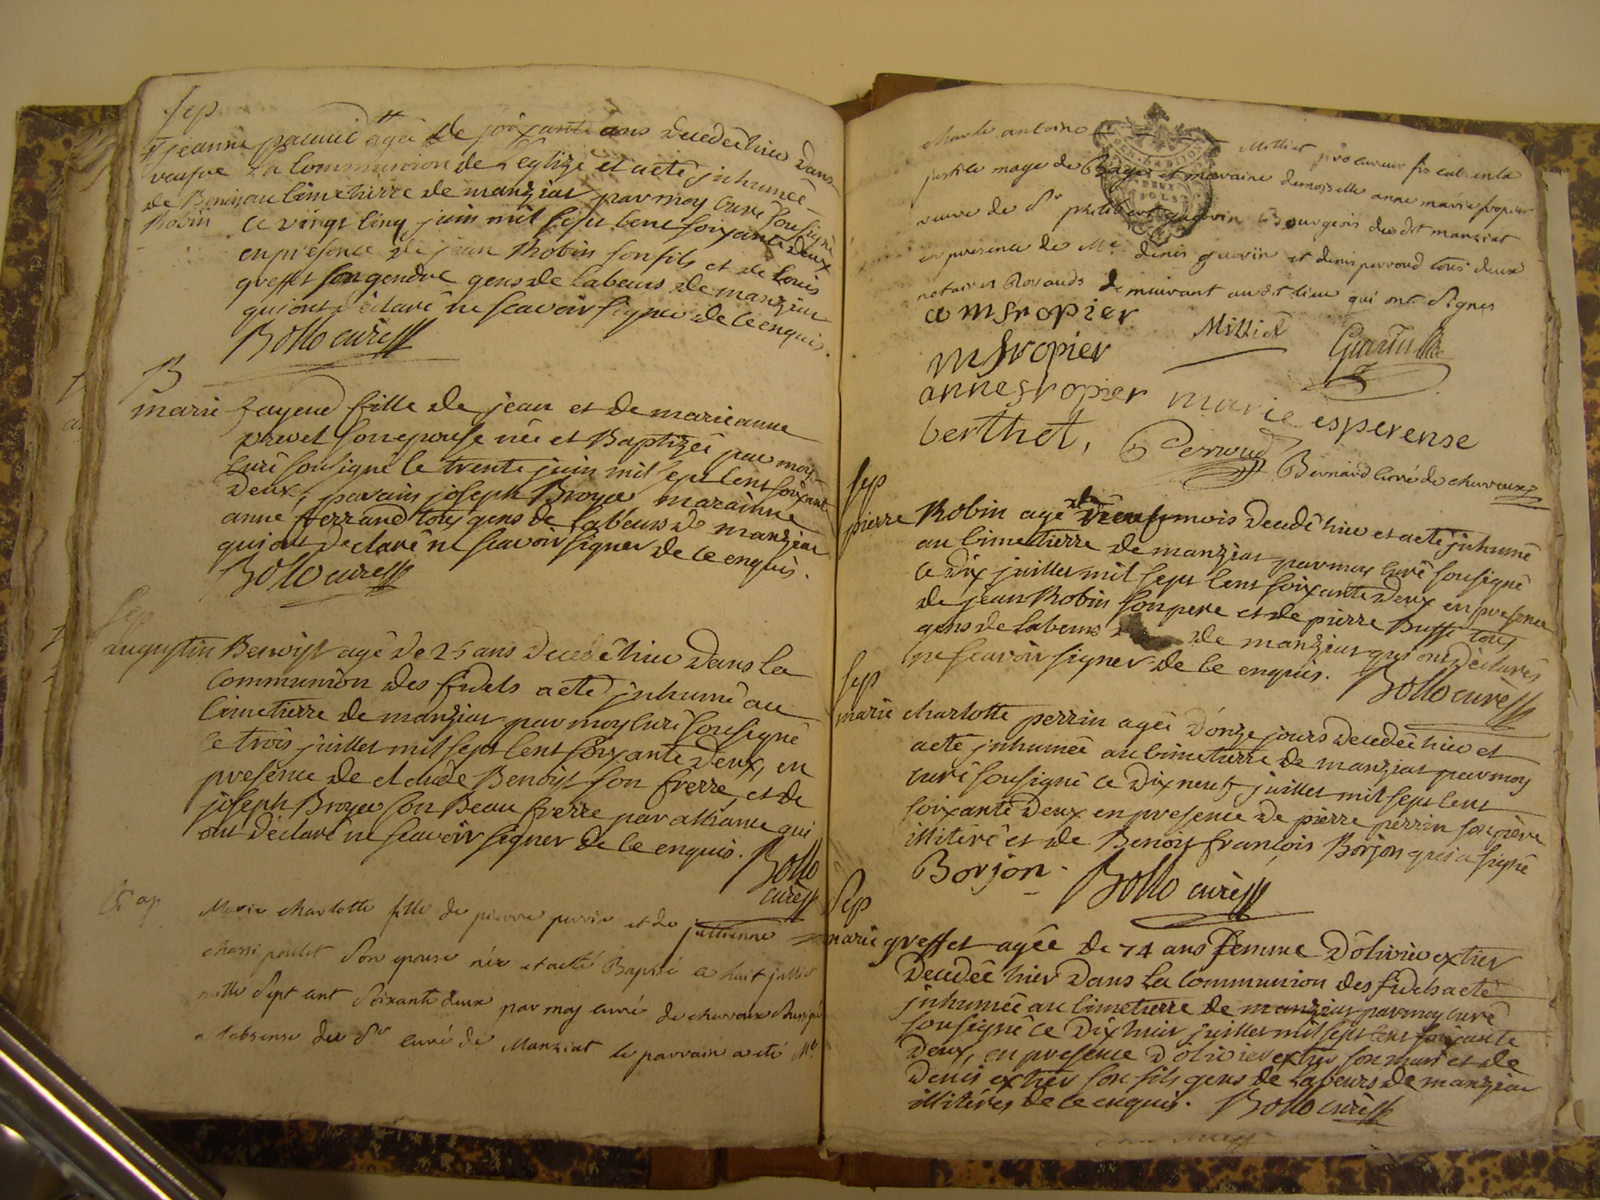 Sep
jeanne pacaud agée de soixante ans decedée hier dans
veufve la Communion de l'Eglize et acté jnhumée
de Benoit au Cimetierre de manziat par moy Curé sousigné
Robin Ce vingt Cinq juin mil sept Cent soixante deux
en presence de jean Robin son fils et de Louis
greffet son gendre gens de labeurs de manziat
qui ont déclaré ne scavoir signer de ce enquis.
Bollo curé
B
marie fayend fille de jean et de marieanne
son epouse née et Baptizée par moy
Curé sousigné le trente juin mil sept Cent soixante
Deux, parain joseph Broyer maraine
anne ferrand tous gens de labeurs de manziat
qui ont declaré ne scavoir signer de ce enquis.
Bollo curé
Sep
augustin Benoist agé de 25 ans decedé hier dans la
Communion des fidels acté jnhumé au
Cimetierre de manziat par moy Curé sousigné
ce trois juillet mil sept Cent soixante deux, en
presence de Claude Benoist son frerre, et de
joseph Broyer son Beau frerre par alliance qui
ont déclaré ne scavoir signer de ce enquis. Bollo
curé
Bap
Marie charlotte fille de pierre perrin et de julienne
chassipoulet son epouse née et acté Baptisé ce huit juillet
mille sept cent soixante deux par moy curé de chavaux
a l'absence du Sr curé de Manziat le parrain a été Mr
Charle antoine Milliet procureur fiscal en la
justice mage de Bagé et maraine demoiselle anne marie fropier
veuve de Sr philibert guerin Bourgeois dudit manziat
en presence de Me denis guerin et denis perroud tous deux
notaires Royauds demeurant audit lieu qui ont signes
a m fropier Milliet Guerin
m fropier
anne fropier marie esperense
berthet, Perroud Bernard curé de chavaux
Sep
pierre Robin agé de mois decedé hier et acté jnhumé
au Cimetierre de manziat par moy Curé sousigné
ce dix juillet mil sept Cent soixante deux en presence
de jean Robin son pere et de pierre Buffi tous
gens de labeurs de manziat qui ont déclarés
ne scavoir signer de ce enquis. Bollo curé
Sep
marie charlotte perrin agée d'onze jours decedée hier et
acté jnhumée au Cimetierre de manziat par moy
curé sousigné ce dix neuf juillet mil sept Cent
soixante deux en presence de pierre perrin son père
illiteré et de Benoit françois Borjon qui a signé
Borjon Bollo curé
Sep
marie greffet agée de 74 ans femme d'olivier extier
decedée hier dans la Communion des fidels acté
jnhumée au Cimetierre de manziat par moy Curé
sousigné ce dix huit juillet mil sept Cent soixante
deux, en presence d'olivier extier son mari et de
denis extier son fils gens de labeurs de manziat
illiterés de ce enquis. Bollo curé